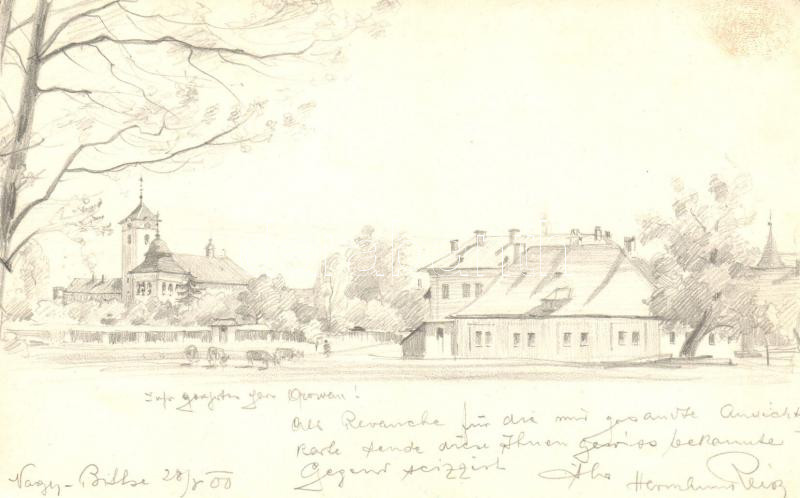 Sehr geehrter Herr Orowan!
Als Revanche für die mir gesandte Ansichts-
karte sende diese Ihnen gewiss bekannte
Gegend skizzirt
Hermann
Nagy-Bittse 28/X 00